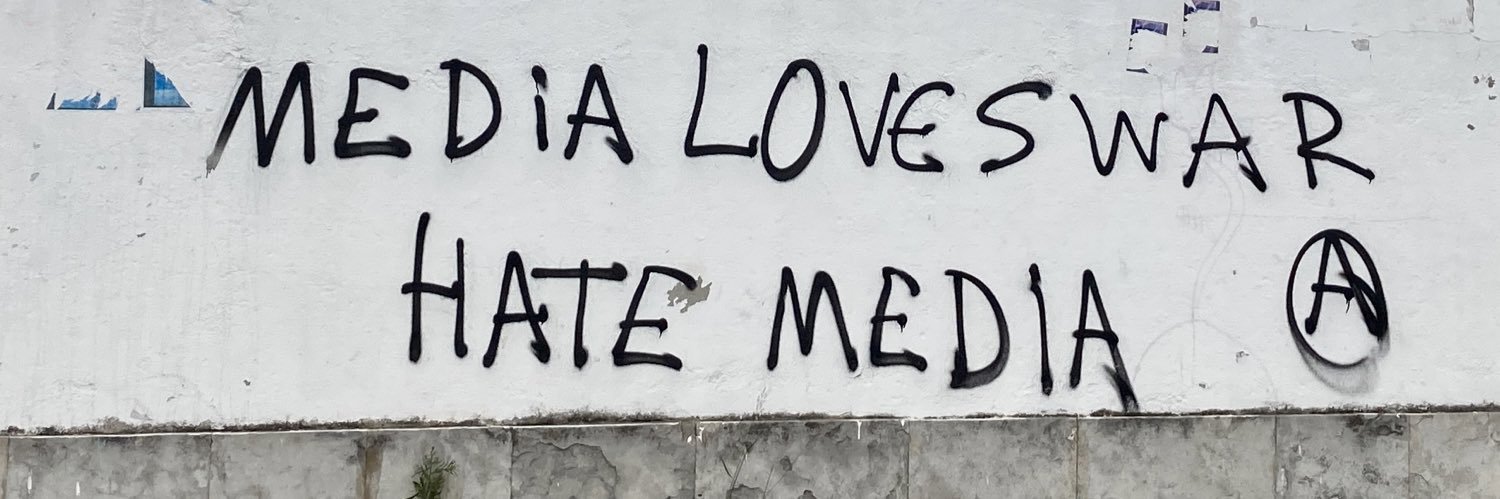 MEDiA LOVES WAR
HATE MEDIA Ⓐ